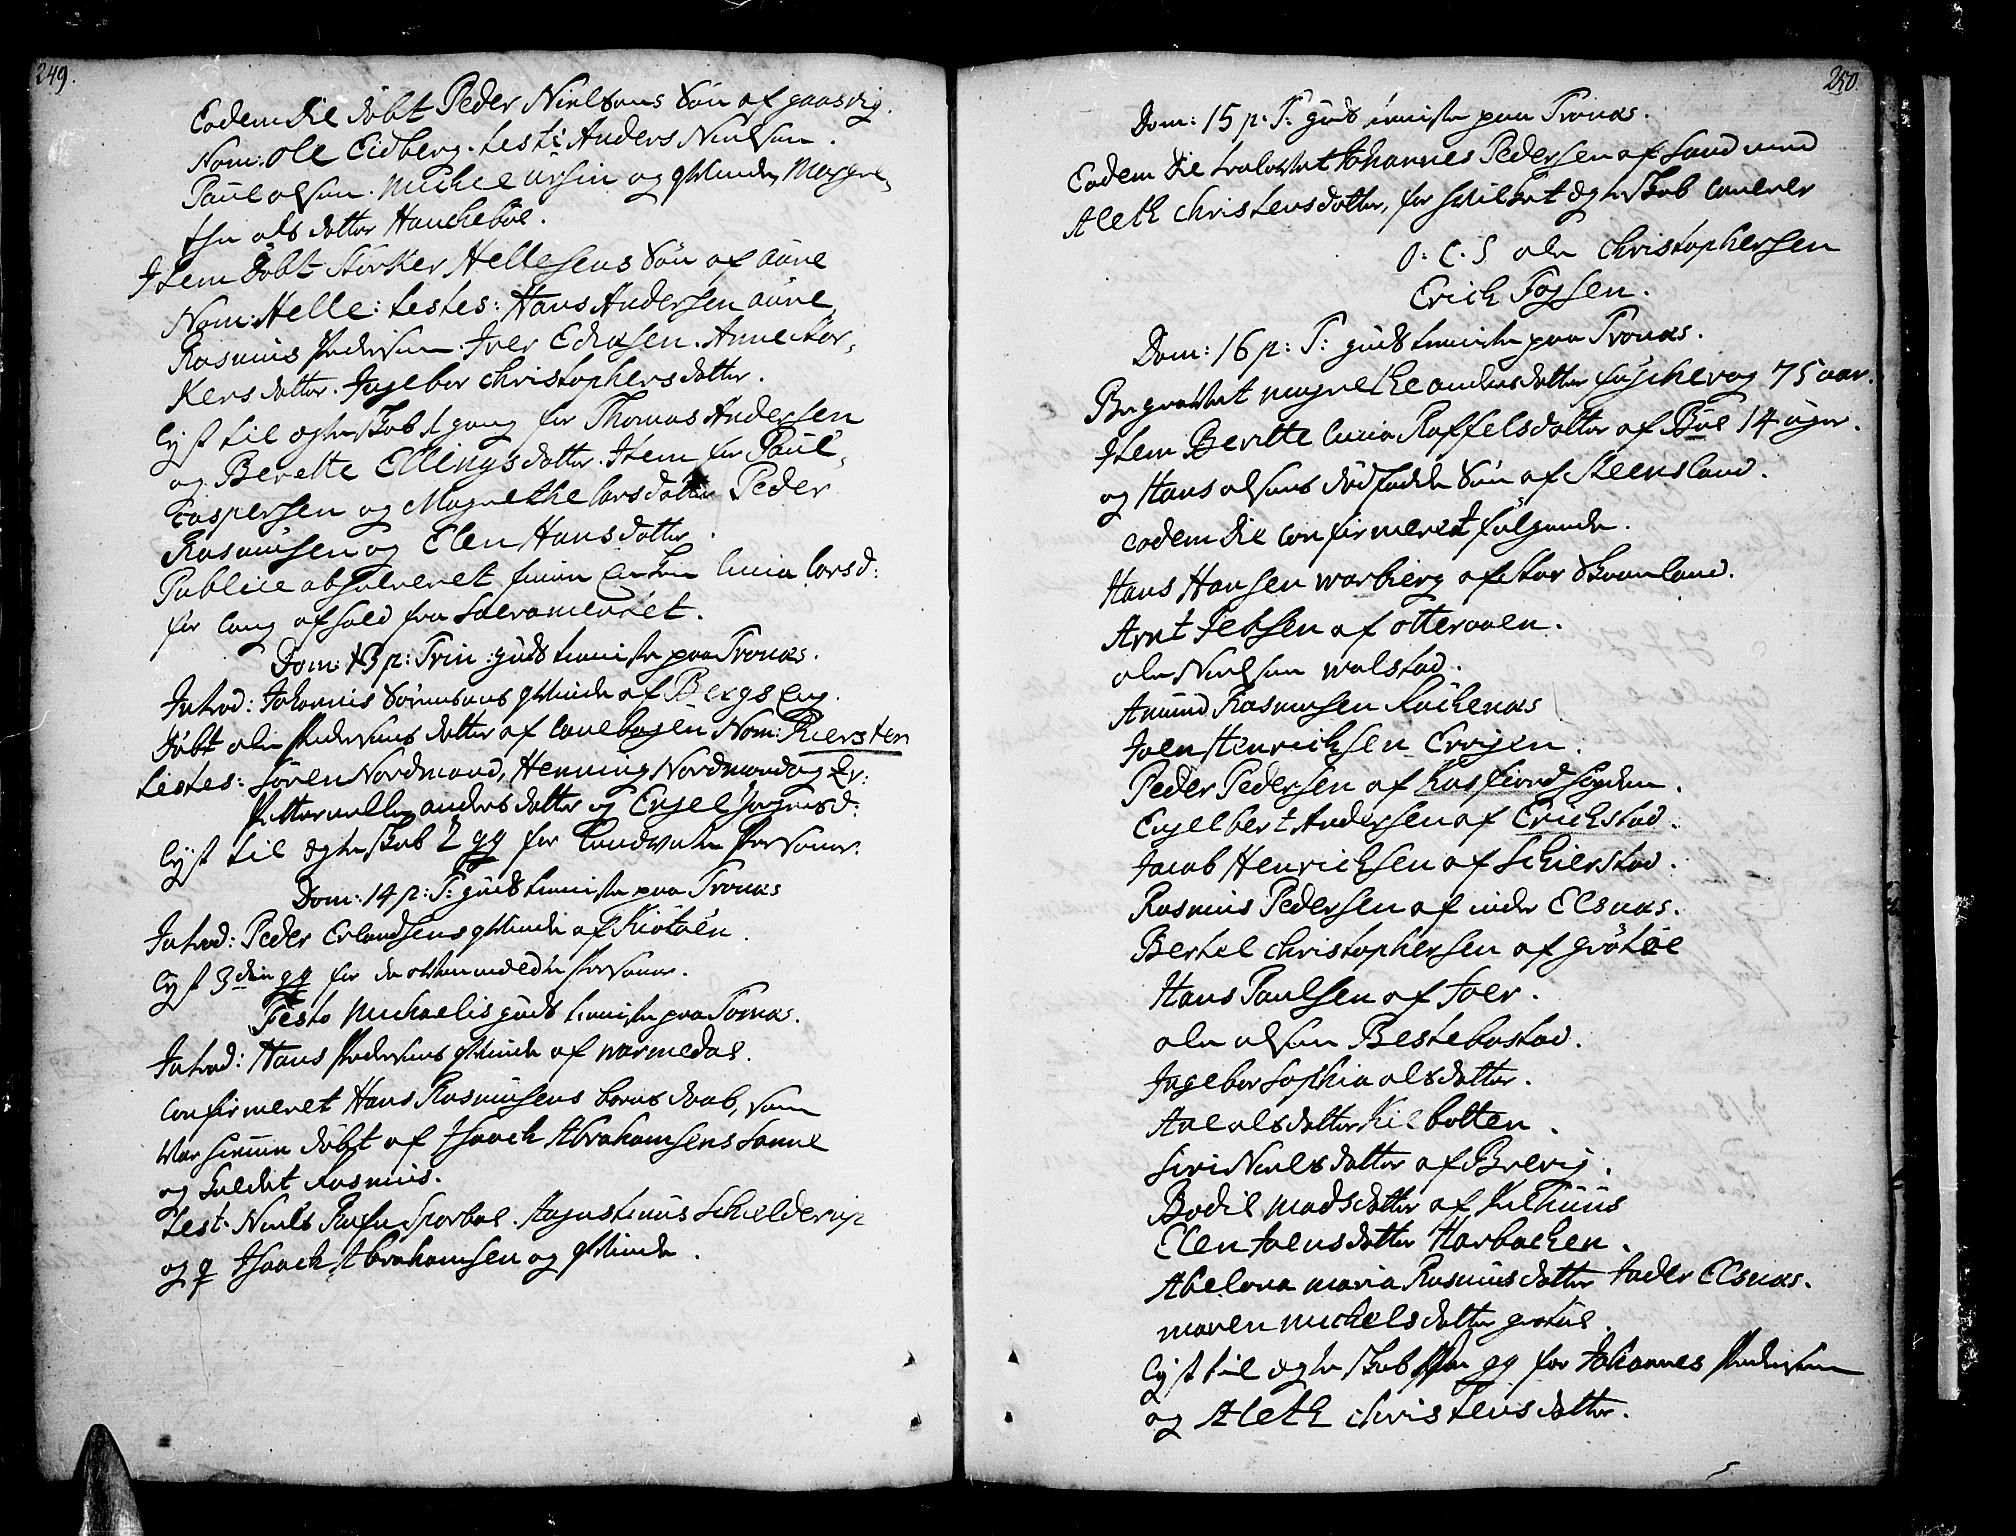 249.
Eodem die döbt Peder Nielsens Sön af gaasvig.
Nom: Ole Eidberg. testi Anders Nielsen.
Paul olsen. Michel ursin og qvinde, Magre-
the ols datter Hauchebøe.
Item döbt Störker Hellesens Sön af aune
Nom: Helle: testes: Hans Andersen aune
Rasmus Pedersen. Iver Edisen. Anne Stör-
Kers datter. Ingebor Christophers datter.
lyst til ægteskab 1 gang for Thomas Andersen
og Berette Ellings datter. Item for Paul
Caspersen og Magrethe lars datter Peder
Rasmusen og Elen Hans datter.
Publice absolveret lucia larsd:
for lang afhold fra Sacramentet.
Dom: 13 p: Trin: guds tieniste paa Tronæs.
Introd: Johannis Sörensens qvinde af Bergs eng.
Döbt ole Pedersens datter af Nom: Kiersten
testes: Sören Nordmand, Henning Nordmand og
Petternelle anders datter og Engel
lyst til ægteskab 2 gg for Personer.
Dom: 14 p: T: guds tieniste paa Tronæs
Introd: Peder Erlandsens qvinde af Kiötöen.
lyst 3die gg for Personer.
Festo Michaelis guds tieniste paa Tronæs.
Introd: Hans Pedersens qvinde af warmedal.
Confirmeret Hans Rasmusens barns daab, som
var hiemme döbt af Isaach Abrahamsens Sanne
og kaldet Rasmus.
test. Niels Augustinus Schielderup
og Isaach Abrahamsen og qvinde.
250.
Dom: 15 p: T: guds tieniste paa Tronæs.
Eodem die trolovet Johannes Pedersen af Sand med
Aleth Christens datter, for hvilket ægteskab caverer
O. C. S ole Christophersen
Erich Fogsen.
Dom: 16 p: T: guds tieniste paa Tronæs.
Begravet magrethe anders datter 75 aar.
Item Beritte lucia Raffels datter af Böe 14 uger.
og Hans olsens dödfödde Sön af Steensland.
eodem die Confirmeret fölgende.
Hans Hansen warberg af Stor Skaanland.
Arnt Jebsen af otteraaen.
ole Nielsen walstad.
Amund Rasmusen
Joen Henrichsen Ervigen.
Peder Pedersen af Kasfiord
Engelbert Andersen af Erichstad.
Jacob Henrichsen af Schierstad.
Rasmus Pedersen af inder Elsnæs.
Bertel Christophersen af grötöe
Hans Paulsen af
ole olsen Bestebostad.
Ingebor Sophia ols datter.
Ane ols datter Kilbotten.
Siri Niels datter af Brevig.
Bodil Mads datter af
Elen Joens datter Harbachen.
Abelona maria Rasmus datter Inder Elsnæs.
maren michels datter
lyst til ægteskab gg for Johannes Pedersen
og Aleth Christens datter.